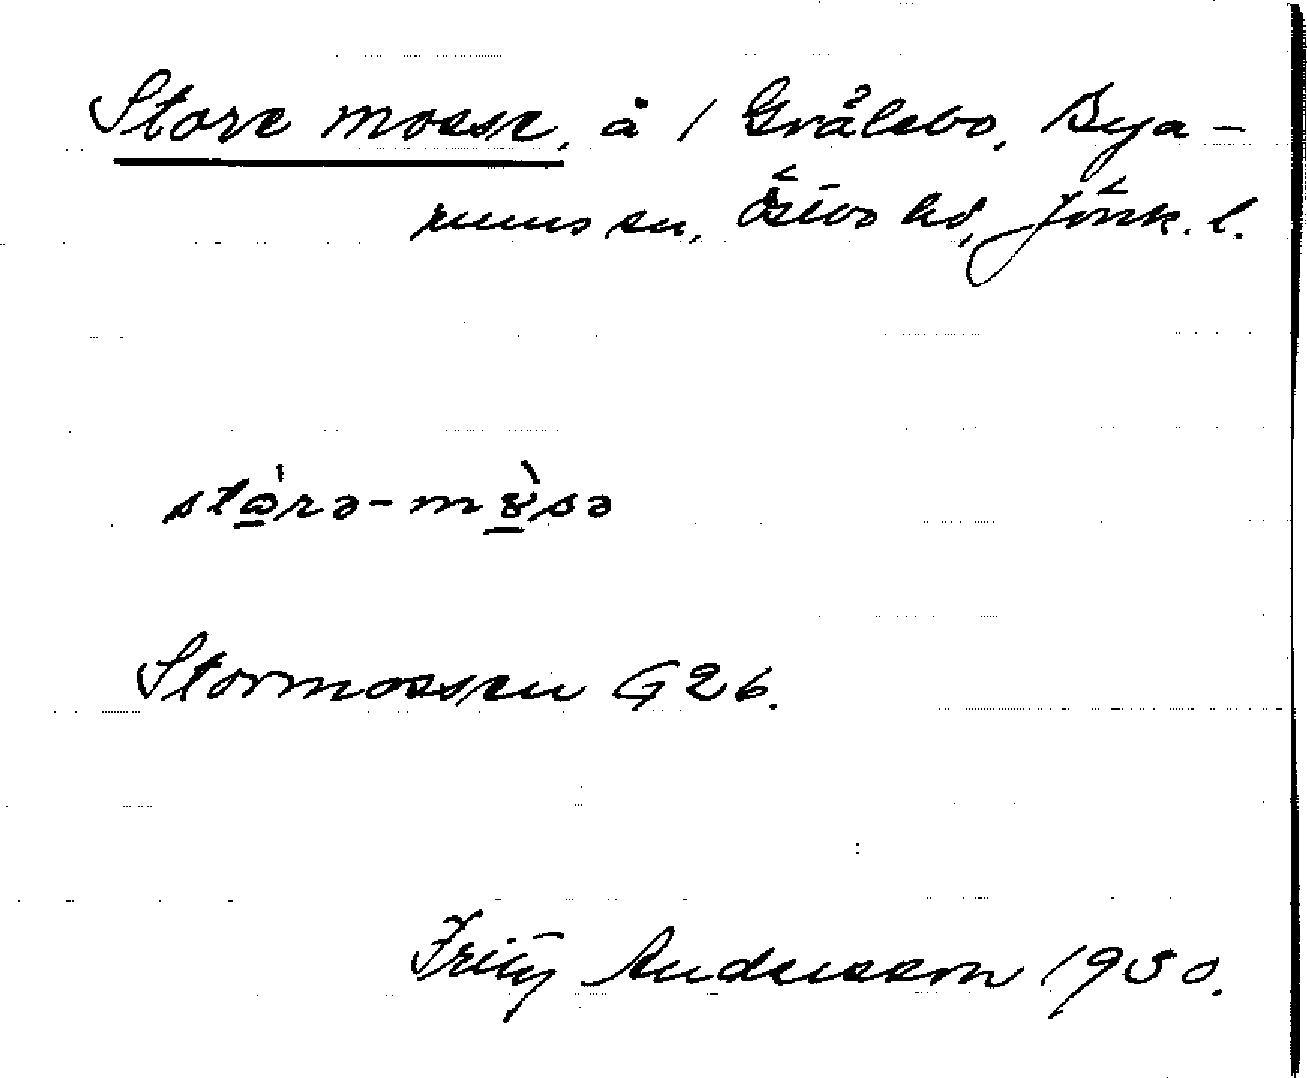 Store mosse, å 1 Grålebo, Bya-
rums sn, Östbo hd, Jönk. l.
Stormossen G26.
Fritz Andersson 1950.